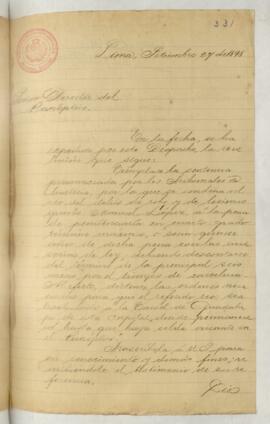 331
Lima, Setiembre 27 de 1898
Señor Director del
Panóptico.
En la fecha, se ha
expedido por este Despacho la reso
lución que sigue:
Cúmplase la sentencia
pronunciada por los Tribunales de
Justicia, por la que se condena al
reo del delito de robo y de lesiones
Manuel López, a la pena
de penitenciaría en cuarto grado
término máximo, o sean quince
años de dicha pena con las acce
sorias de ley, debiendo descontarse
de la principal
por el tiempo de carcelería
Al efecto, díctense las órdenes nece
sarias para que el referido reo sea
a la Carcel de Guadalu
pe de esta capital, donde permanece
rá hasta que haya celda vacante en
el Panóptico".
Trascríbola a U.S. para
su conocimiento y demás fines; re
mitiéndole el testimonio de su re
ferencia.
Dios